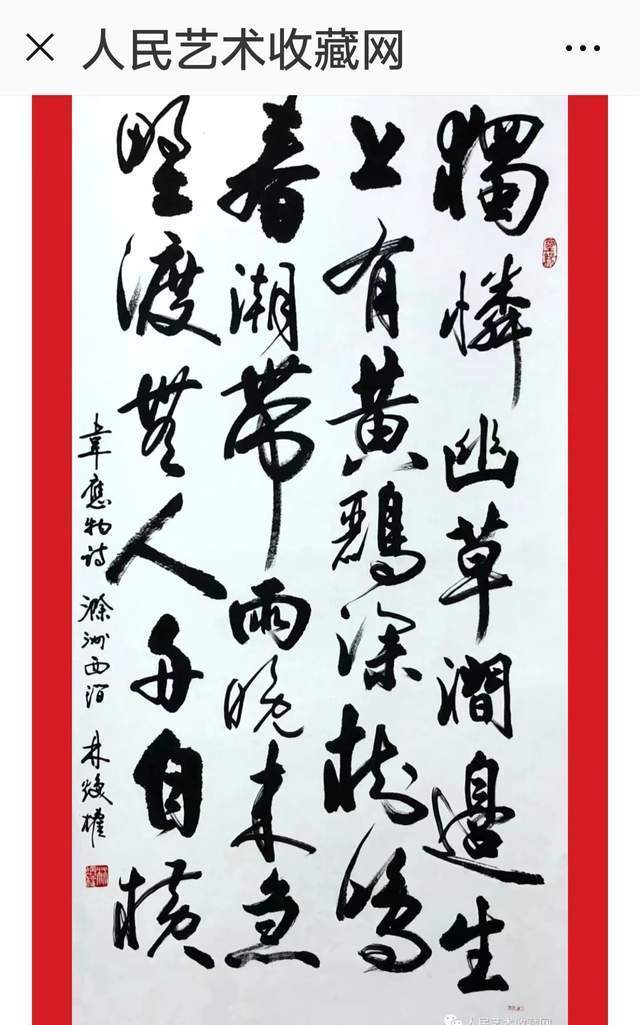 人民艺术收藏网
獨憐幽草澗邊生
上有黃鸝深樹鳴
春潮帶雨晚來急
野渡無人舟自橫
韋應物詩 滁州西澗 林
人民艺术收藏网